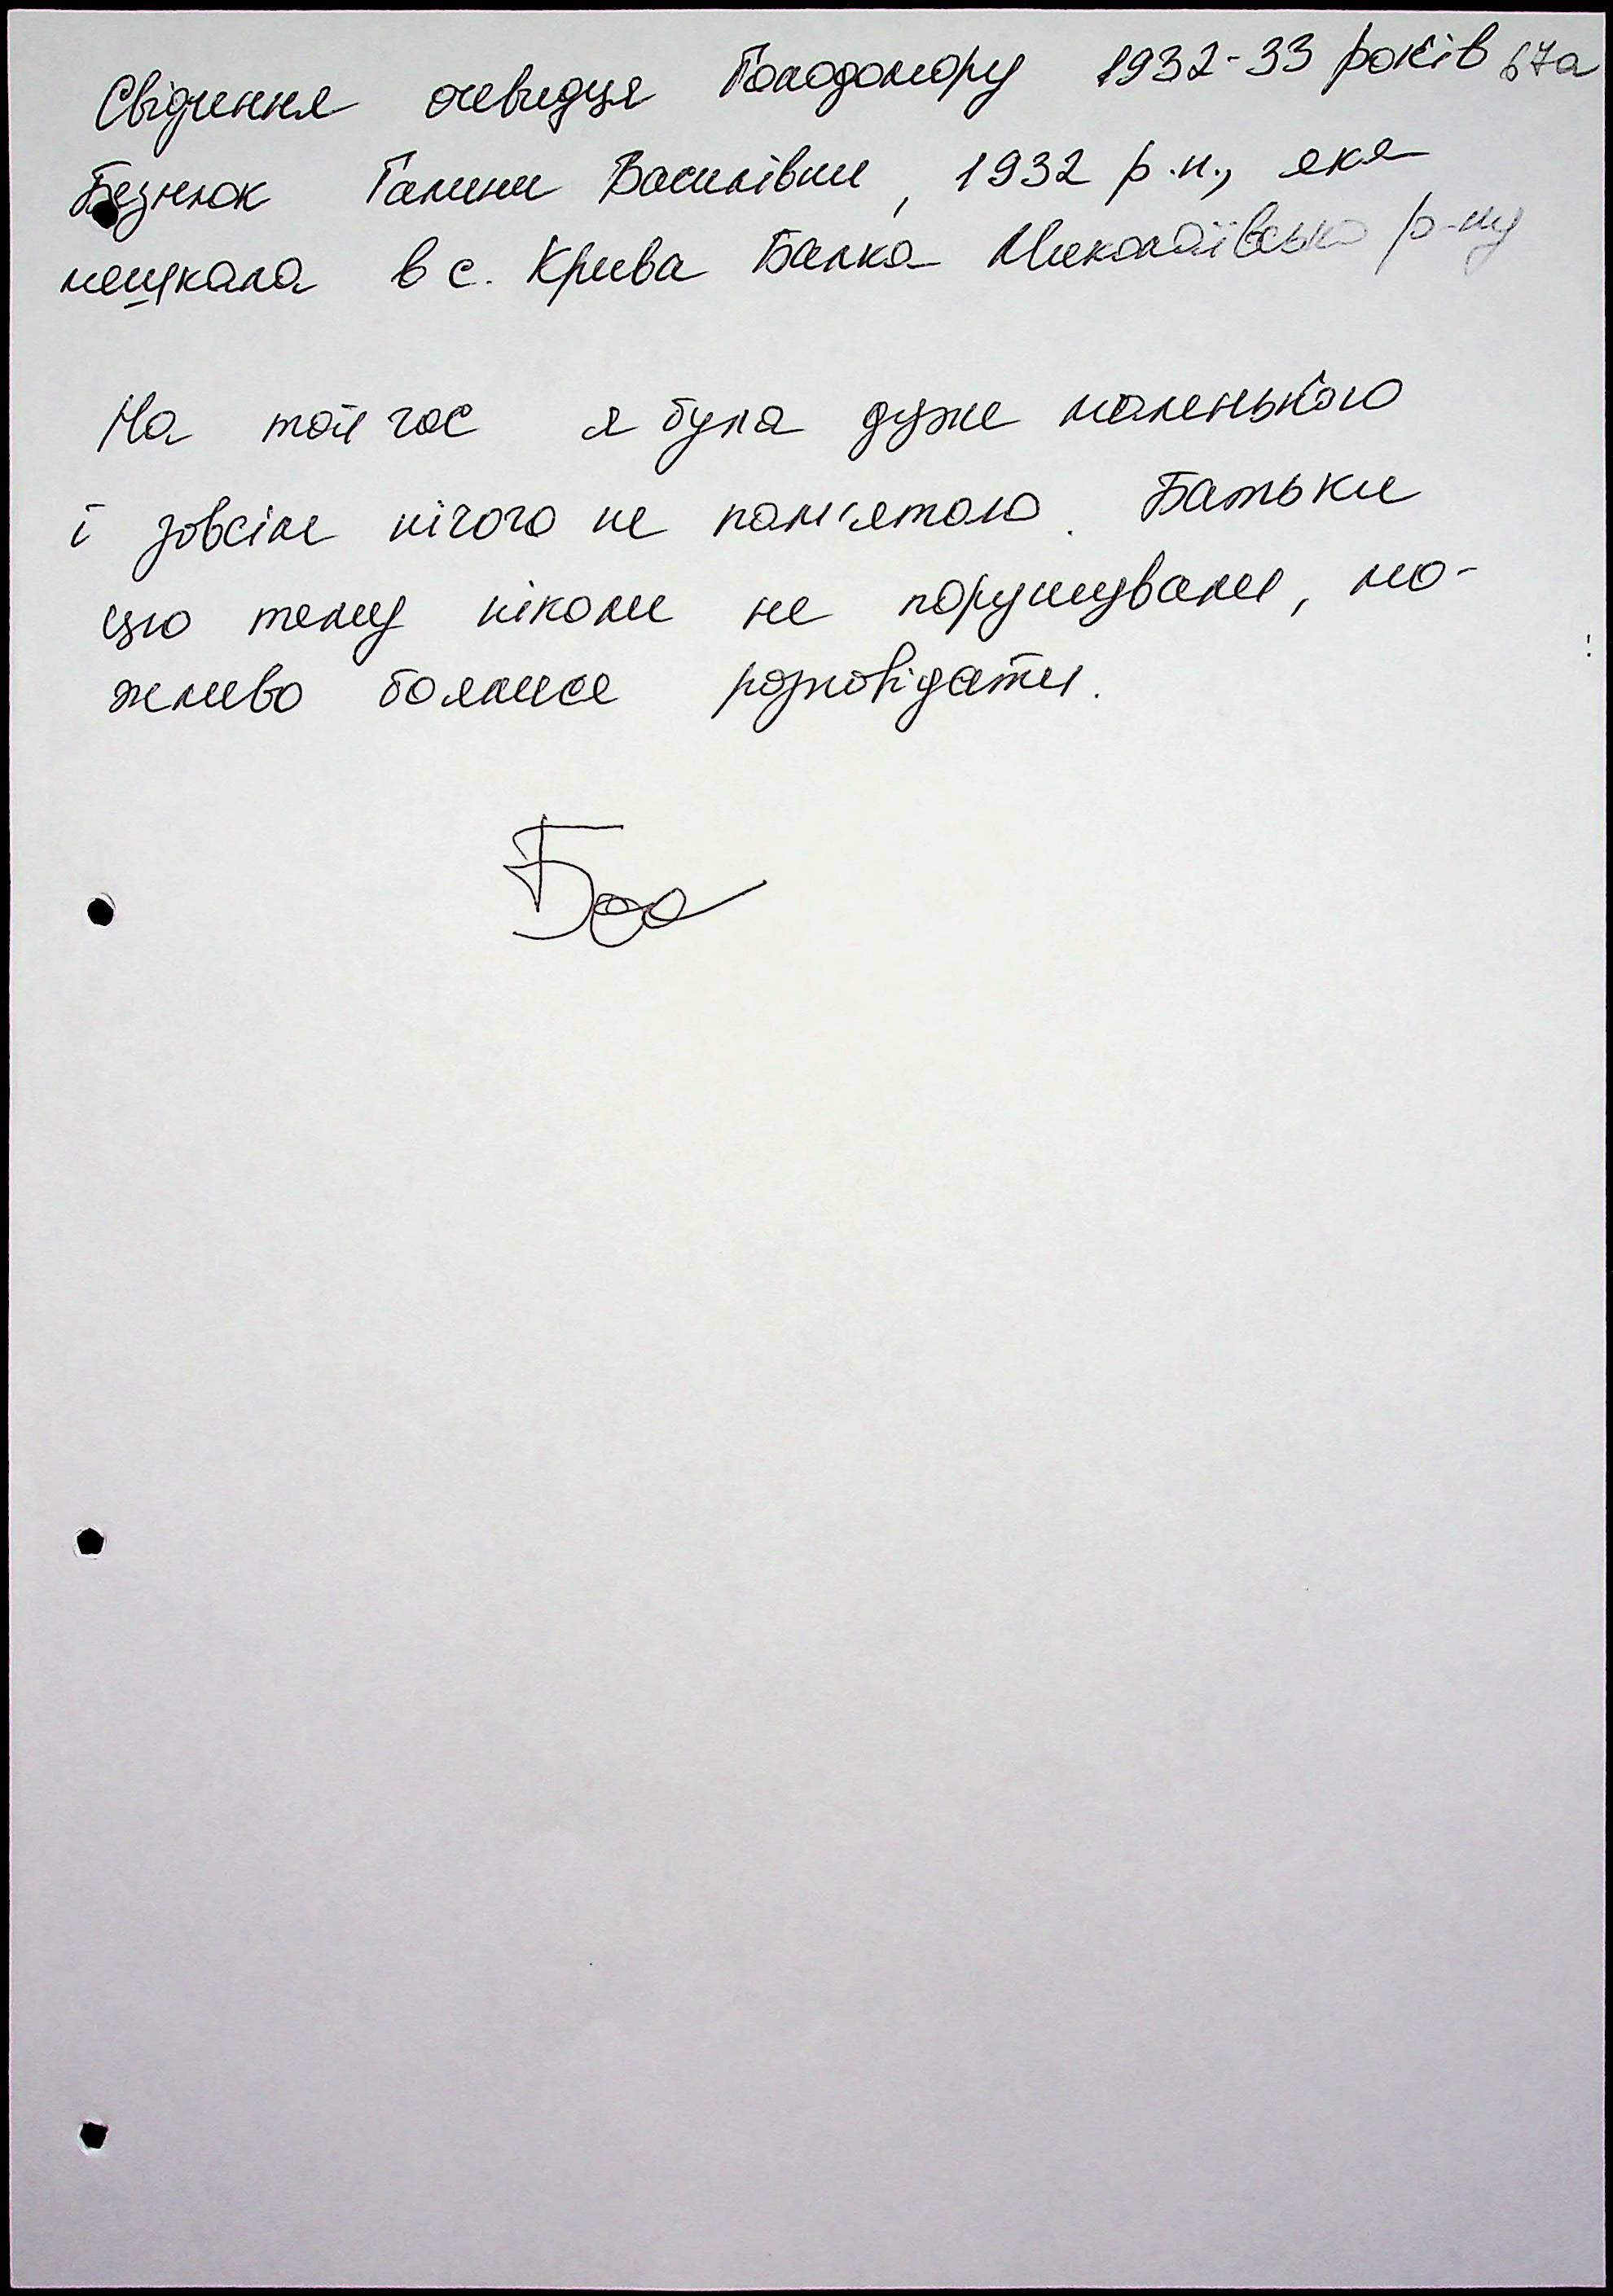 Свідчення очевидця Голодомору 1932-33 років 67а
Безнюк Галини Василівни, 1932 р.н., яка
мешкала в с. Крива Балка Миколаївсько р-ну
На той час я була дуже маленькою
і зовсім нічого не пам'ятаю. Батьки
цю тему ніколи не порушували, мо-
жливо боялися розповідати.